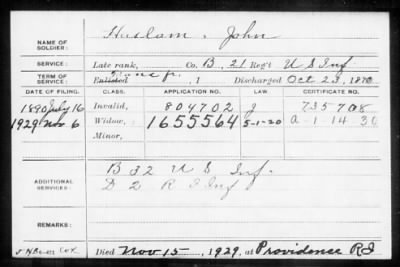 NAME OF SOLDIER: Haslam, John
SERVICE: Late rank, Co. B, 21 Reg't U S Inf
TERM OF SERVICE: Enlisted , 1 Discharged Oct 23, 1870
DATE OF FILING. CLASS. APPLICATION NO. LAW. CERTIFICATE NO.
1890 July 16 Invalid, 804702 J 735708
1929 Nov 6 Widow, 1655564 5-1-20 A 1-14 30
Minor,
ADDITIONAL SERVICES: B 32 U S Inf.
D 2 R I Inf
REMARKS:
Died Nov 15, 1929, at Providence R I